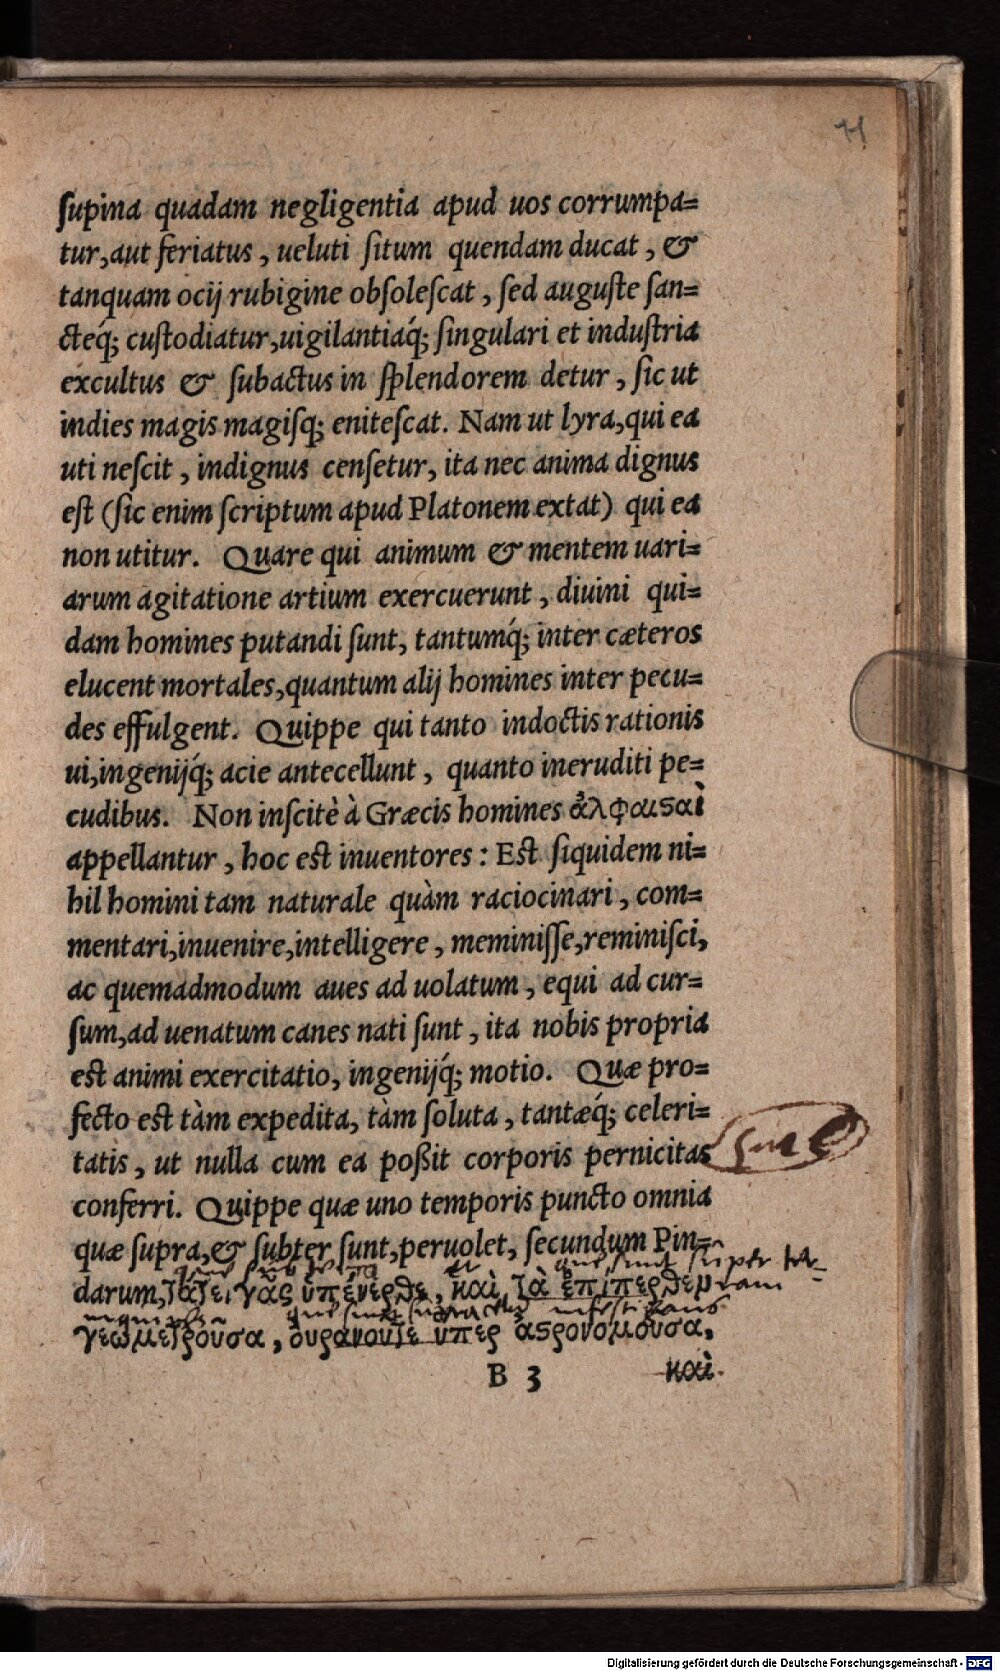 11
ſupina quadam negligentia apud uos corrumpa=
tur,aut feriatus, ueluti ſitum quendam ducat, &
tanquam ocij rubigine obſoleſcat, ſed auguſte ſan=
cteq́; cuſtodiatur,uigilantiaq́; ſingulari et induſtria
excultus & ſubactus in ſplendorem detur, ſic ut
indies magis magiſq; eniteſcat. Nam ut lyra,qui ea
uti neſcit, indignus cenſetur, ita nec anima dignus
eſt (ſic enim ſcriptum apud Platonem extat) qui ea
non utitur. Quare qui animum & mentem uari=
arum agitatione artium exercuerunt, diuini qui=
dam homines putandi ſunt, tantumq́; inter cæteros
elucent mortales,quantum alij homines inter pecu=
des effulgent. Quippe qui tanto indoctis rationis
ui,ingenijq́; acie antecellunt, quanto ineruditi pe=
cudibus. Non inſcitè à Græcis homines ἀλφαιςαὶ
appellantur, hoc eſt inuentores: Eſt ſiquidem ni=
hil homini tam naturale quàm raciocinari, com=
mentari,inuenire,intelligere, meminiſſe,reminiſci,
ac quemadmodum aues ad uolatum, equi ad cur=
ſum,ad uenatum canes nati ſunt, ita nobis propria
eſt animi exercitatio, ingenijq́; motio. Quæ pro=
fecto eſt tàm expedita, tàm ſoluta, tantæq́; celeri=
tatis, ut nulla cum ea poßit corporis pernicitas
conferri. Quippe quæ uno temporis puncto omnia
quæ ſupra,& ſubter ſunt,peruolet, ſecundum Pin=
et que sunt super ter-
darum,τάτε, γᾶς ὑπένερθε, καὶ τὰ ἐπίπερθεμ ram
que sunt supra
γεωμετροῦσα, ουρανουτε υπερ ἀςρονομοῦσα,
B 3 καὶ